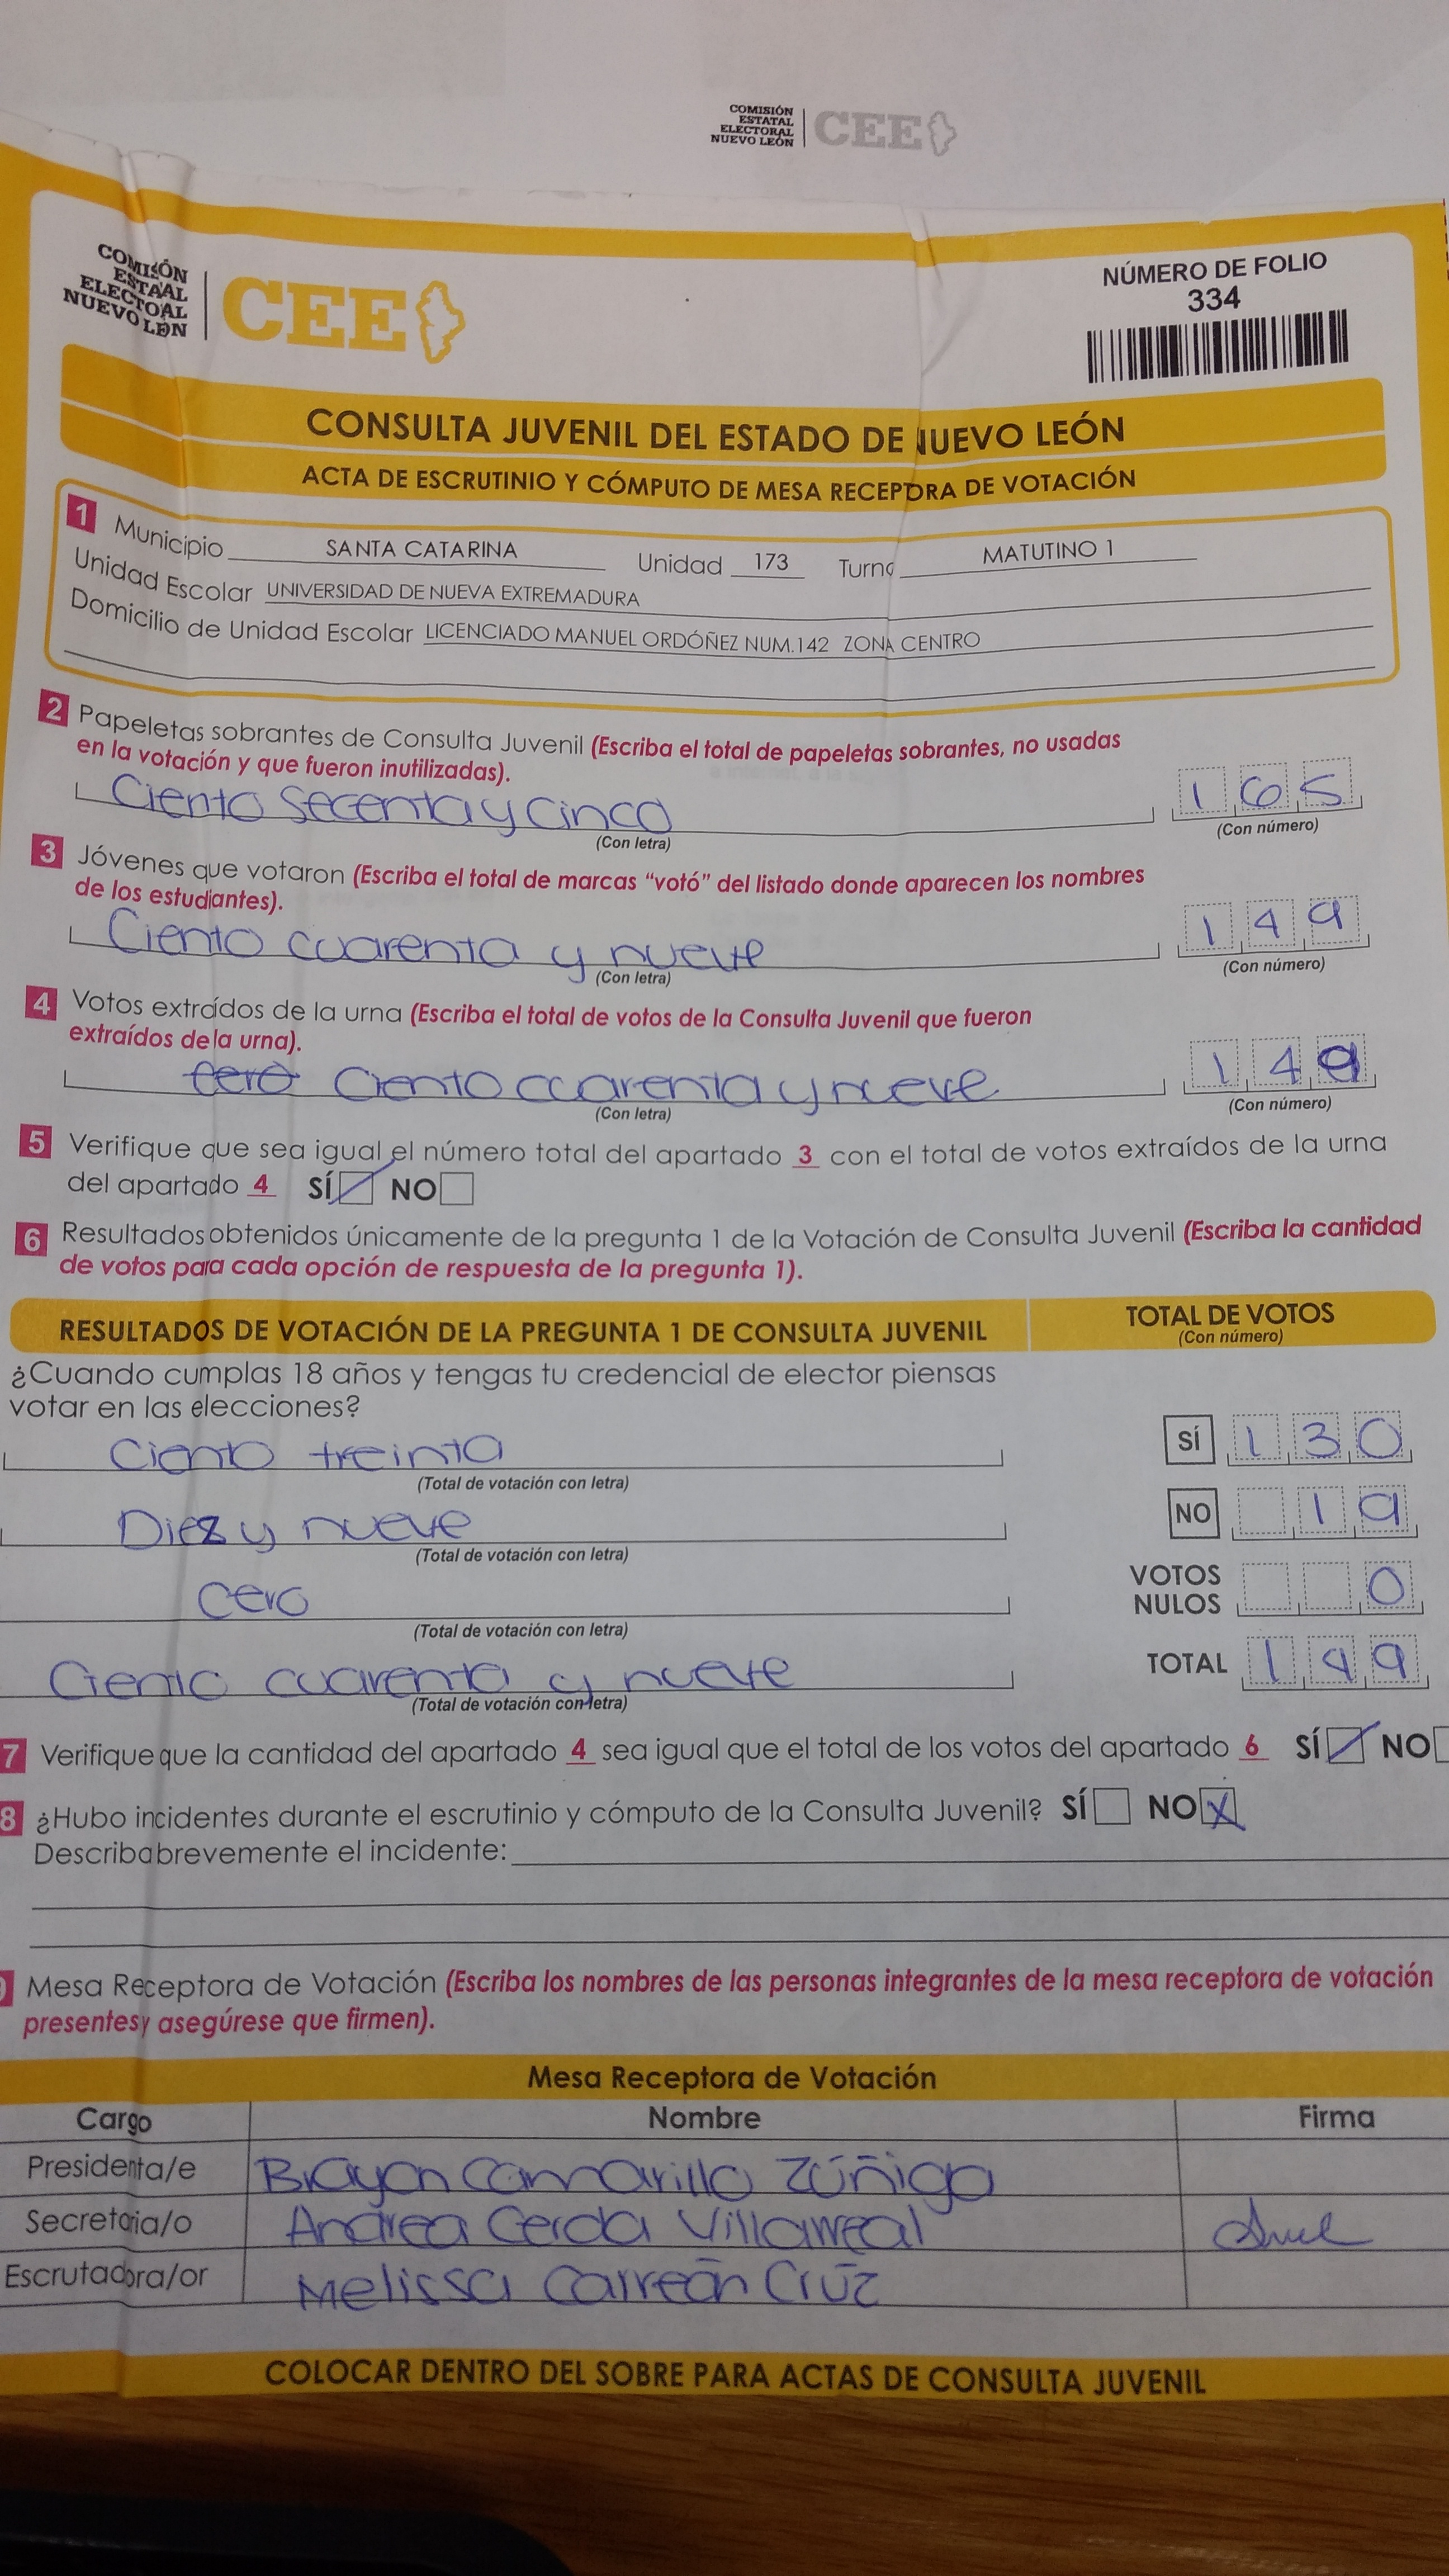 COMISIÓN
ESTATAL
ELECTORAL
NUEVO LEÓN
CEE
COMISIÓN
ESTATAL
ELECTORAL
NUEVO LEÓN
CEE
NÚMERO DE FOLIO
334
CONSULTA JUVENIL DEL ESTADO DE NUEVO LEÓN
ACTA DE ESCRUTINIO Y CÓMPUTO DE MESA RECEPTORA DE VOTACIÓN
1 Municipio SANTA CATARINA Unidad 173 Turno MATUTINO 1
Unidad Escolar UNIVERSIDAD DE NUEVA EXTREMADURA
Domicilio de Unidad Escolar LICENCIADO MANUEL ORDÓÑEZ NUM.142 ZONA CENTRO
2 Papeletas sobrantes de Consulta Juvenil (Escriba el total de papeletas sobrantes, no usadas
en la votación y que fueron inutilizadas).
Ciento Secenta y cinco 1 6 5
(Con letra) (Con número)
3 Jóvenes que votaron (Escriba el total de marcas “votó” del listado donde aparecen los nombres
de los estudiantes).
Ciento cuarenta y nueve 1 4 9
(Con letra) (Con número)
4 Votos extraídos de la urna (Escriba el total de votos de la Consulta Juvenil que fueron
extraídos de la urna).
cero Ciento ccarenta y nueve 1 4 9
(Con letra) (Con número)
5 Verifique que sea igual el número total del apartado 3 con el total de votos extraídos de la urna
del apartado 4 SÍ NO
6 Resultados obtenidos únicamente de la pregunta 1 de la Votación de Consulta Juvenil (Escriba la cantidad
de votos para cada opción de respuesta de la pregunta 1).
RESULTADOS DE VOTACIÓN DE LA PREGUNTA 1 DE CONSULTA JUVENIL TOTAL DE VOTOS
(Con número)
¿Cuando cumplas 18 años y tengas tu credencial de elector piensas
votar en las elecciones?
Ciento treinta SÍ 1 3 0
(Total de votación con letra)
Diez y nueve NO 1 9
(Total de votación con letra)
cero VOTOS NULOS 0
(Total de votación con letra)
Ciento cuarenta y nueve TOTAL 1 4 9
(Total de votación con letra)
7 Verifique que la cantidad del apartado 4 sea igual que el total de los votos del apartado 6 SÍ NO
8 ¿Hubo incidentes durante el escrutinio y cómputo de la Consulta Juvenil? SÍ NO X
Describa brevemente el incidente:
Mesa Receptora de Votación (Escriba los nombres de las personas integrantes de la mesa receptora de votación
presentes y asegúrese que firmen).
Mesa Receptora de Votación
Cargo Nombre Firma
Presidenta/e Brayan Camarillo Zúñiga
Secretaria/o Andrea Cerda Villarreal
Escrutadora/or Melissa Carreón Crúz
COLOCAR DENTRO DEL SOBRE PARA ACTAS DE CONSULTA JUVENIL